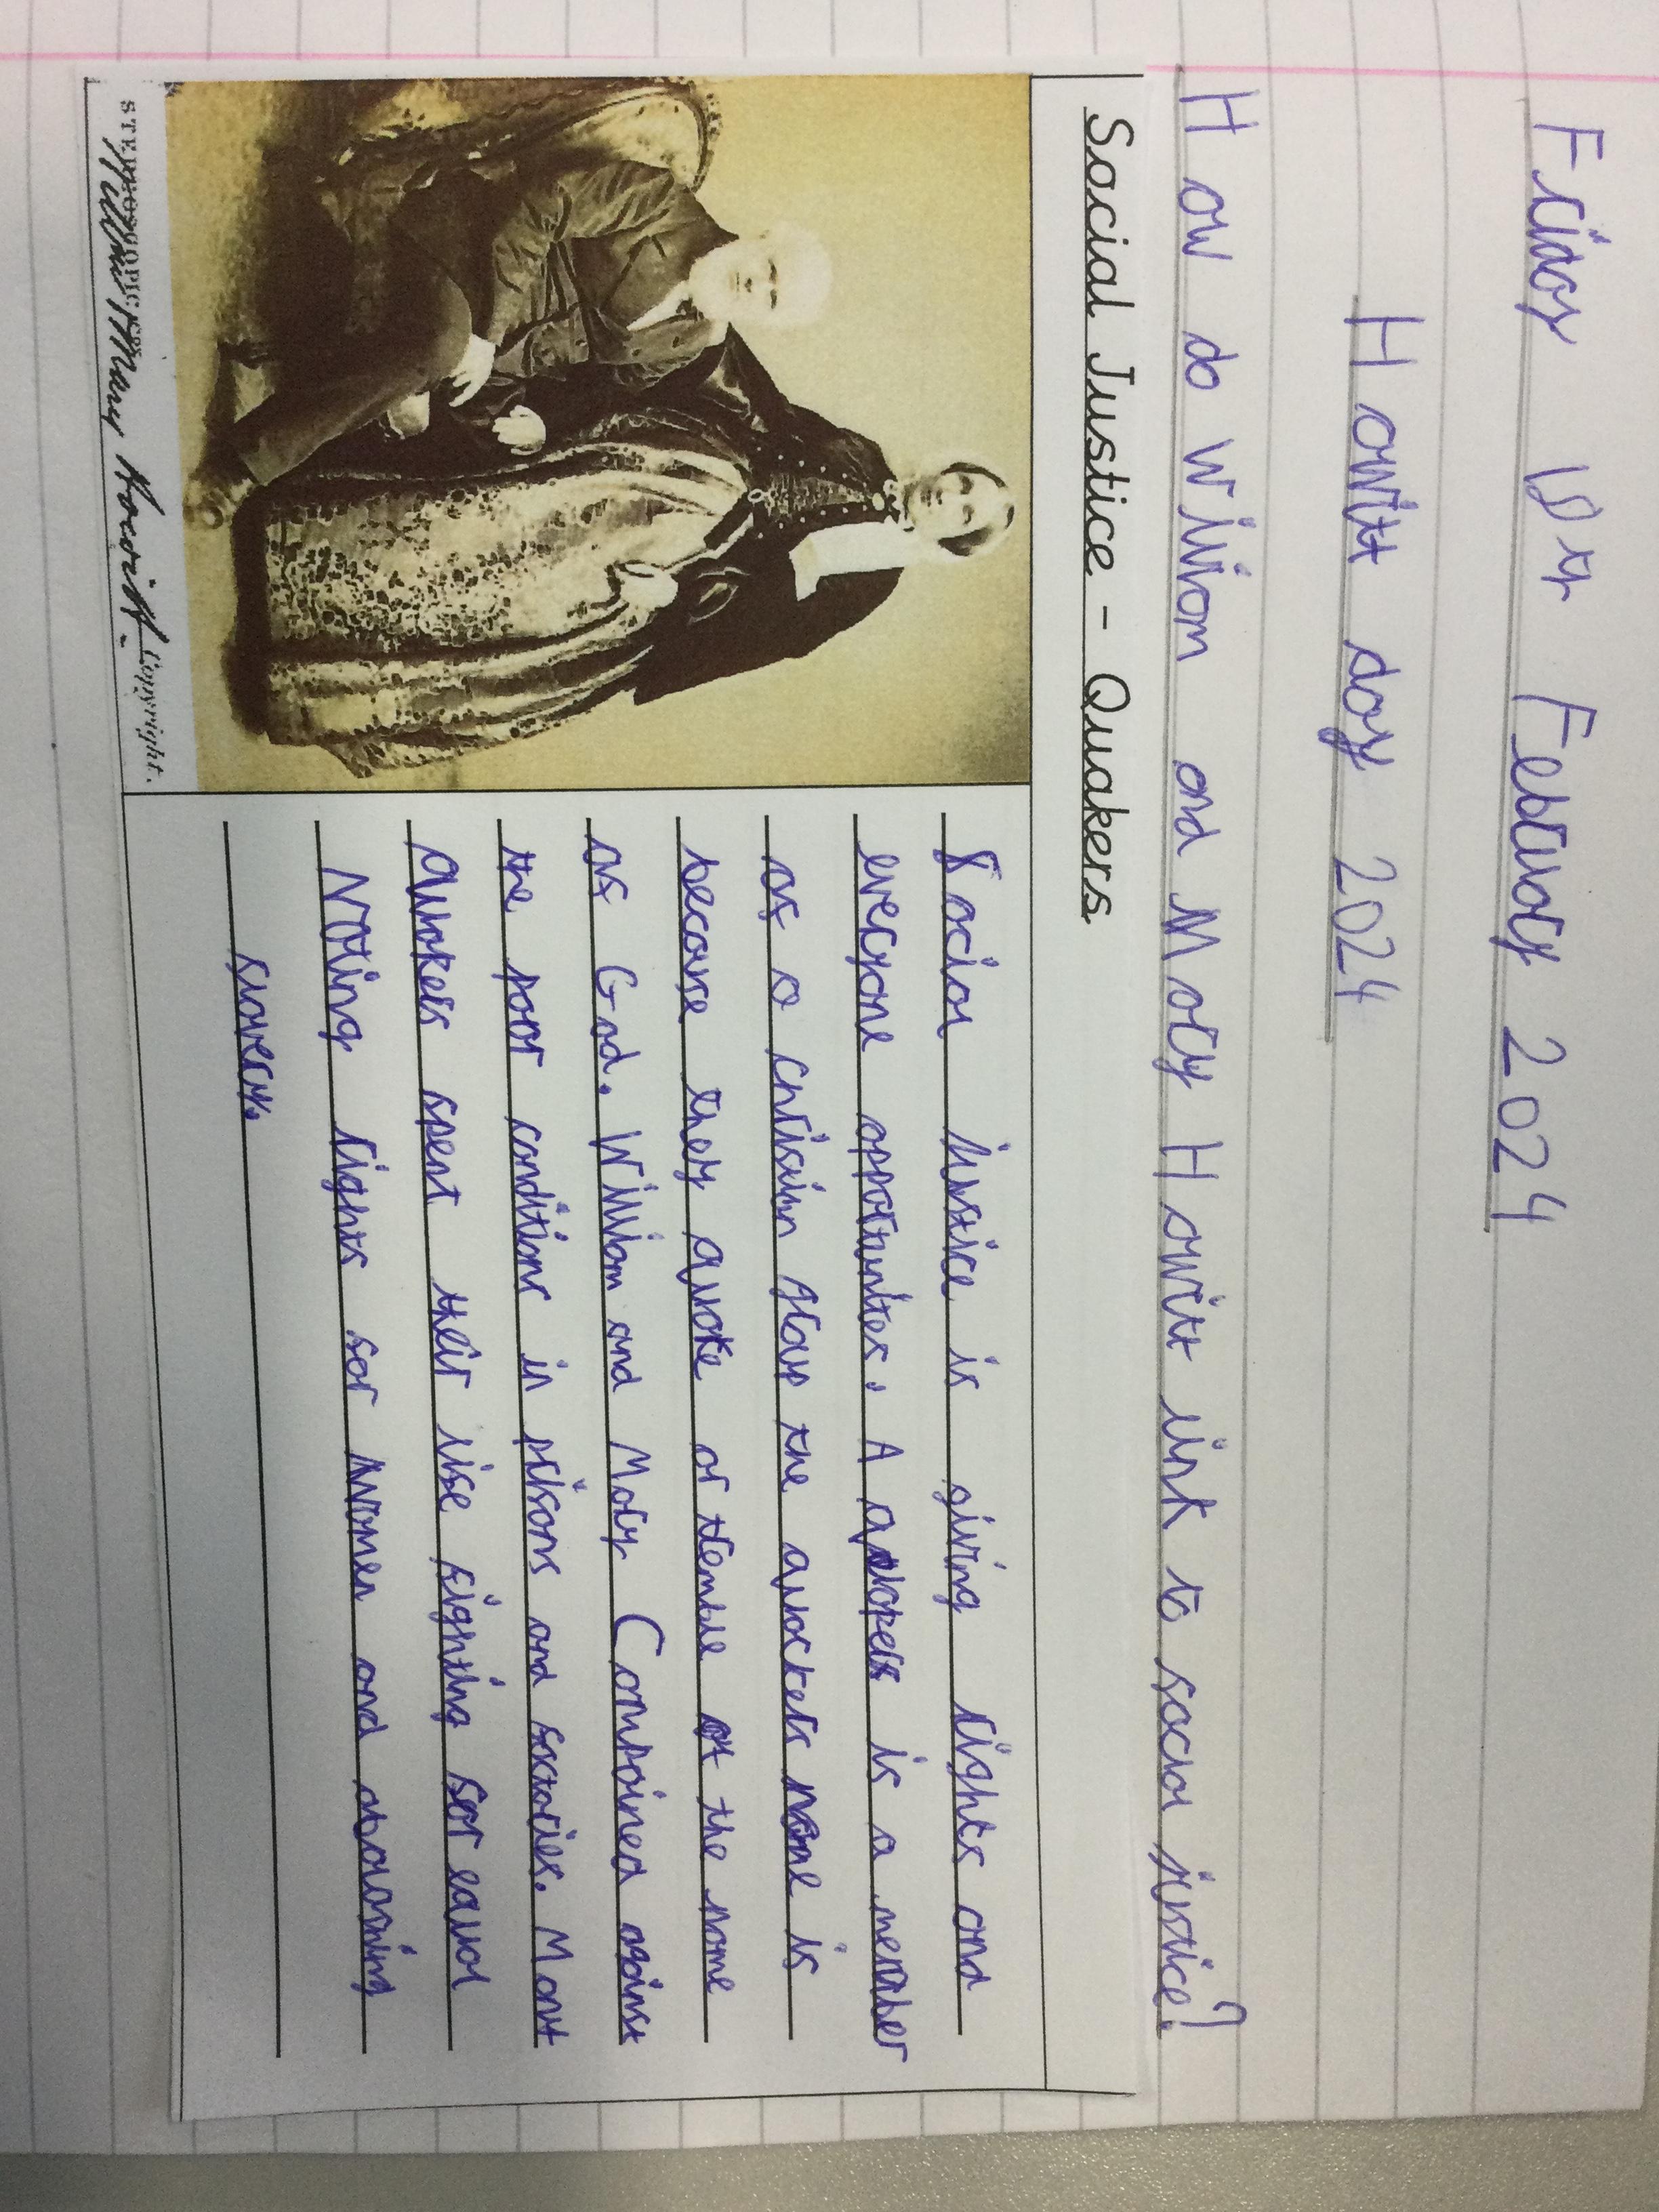 Friday February 2024
Howitt day 2024
How do William and Mary Howitt link to social justice?
Social Justice - Quakers
Social justice is giving rights and
everyone is a member
of a group the name is
because they quake or tremble at the name
of God. William and Mary Compained against
the poor conditions in prisons and factories. Most
Quakers spent their life fighting for equal
Voting rights for women and
slavery.
STEREOSCOPIC Co. Copyright.
William & Mary Howitt.